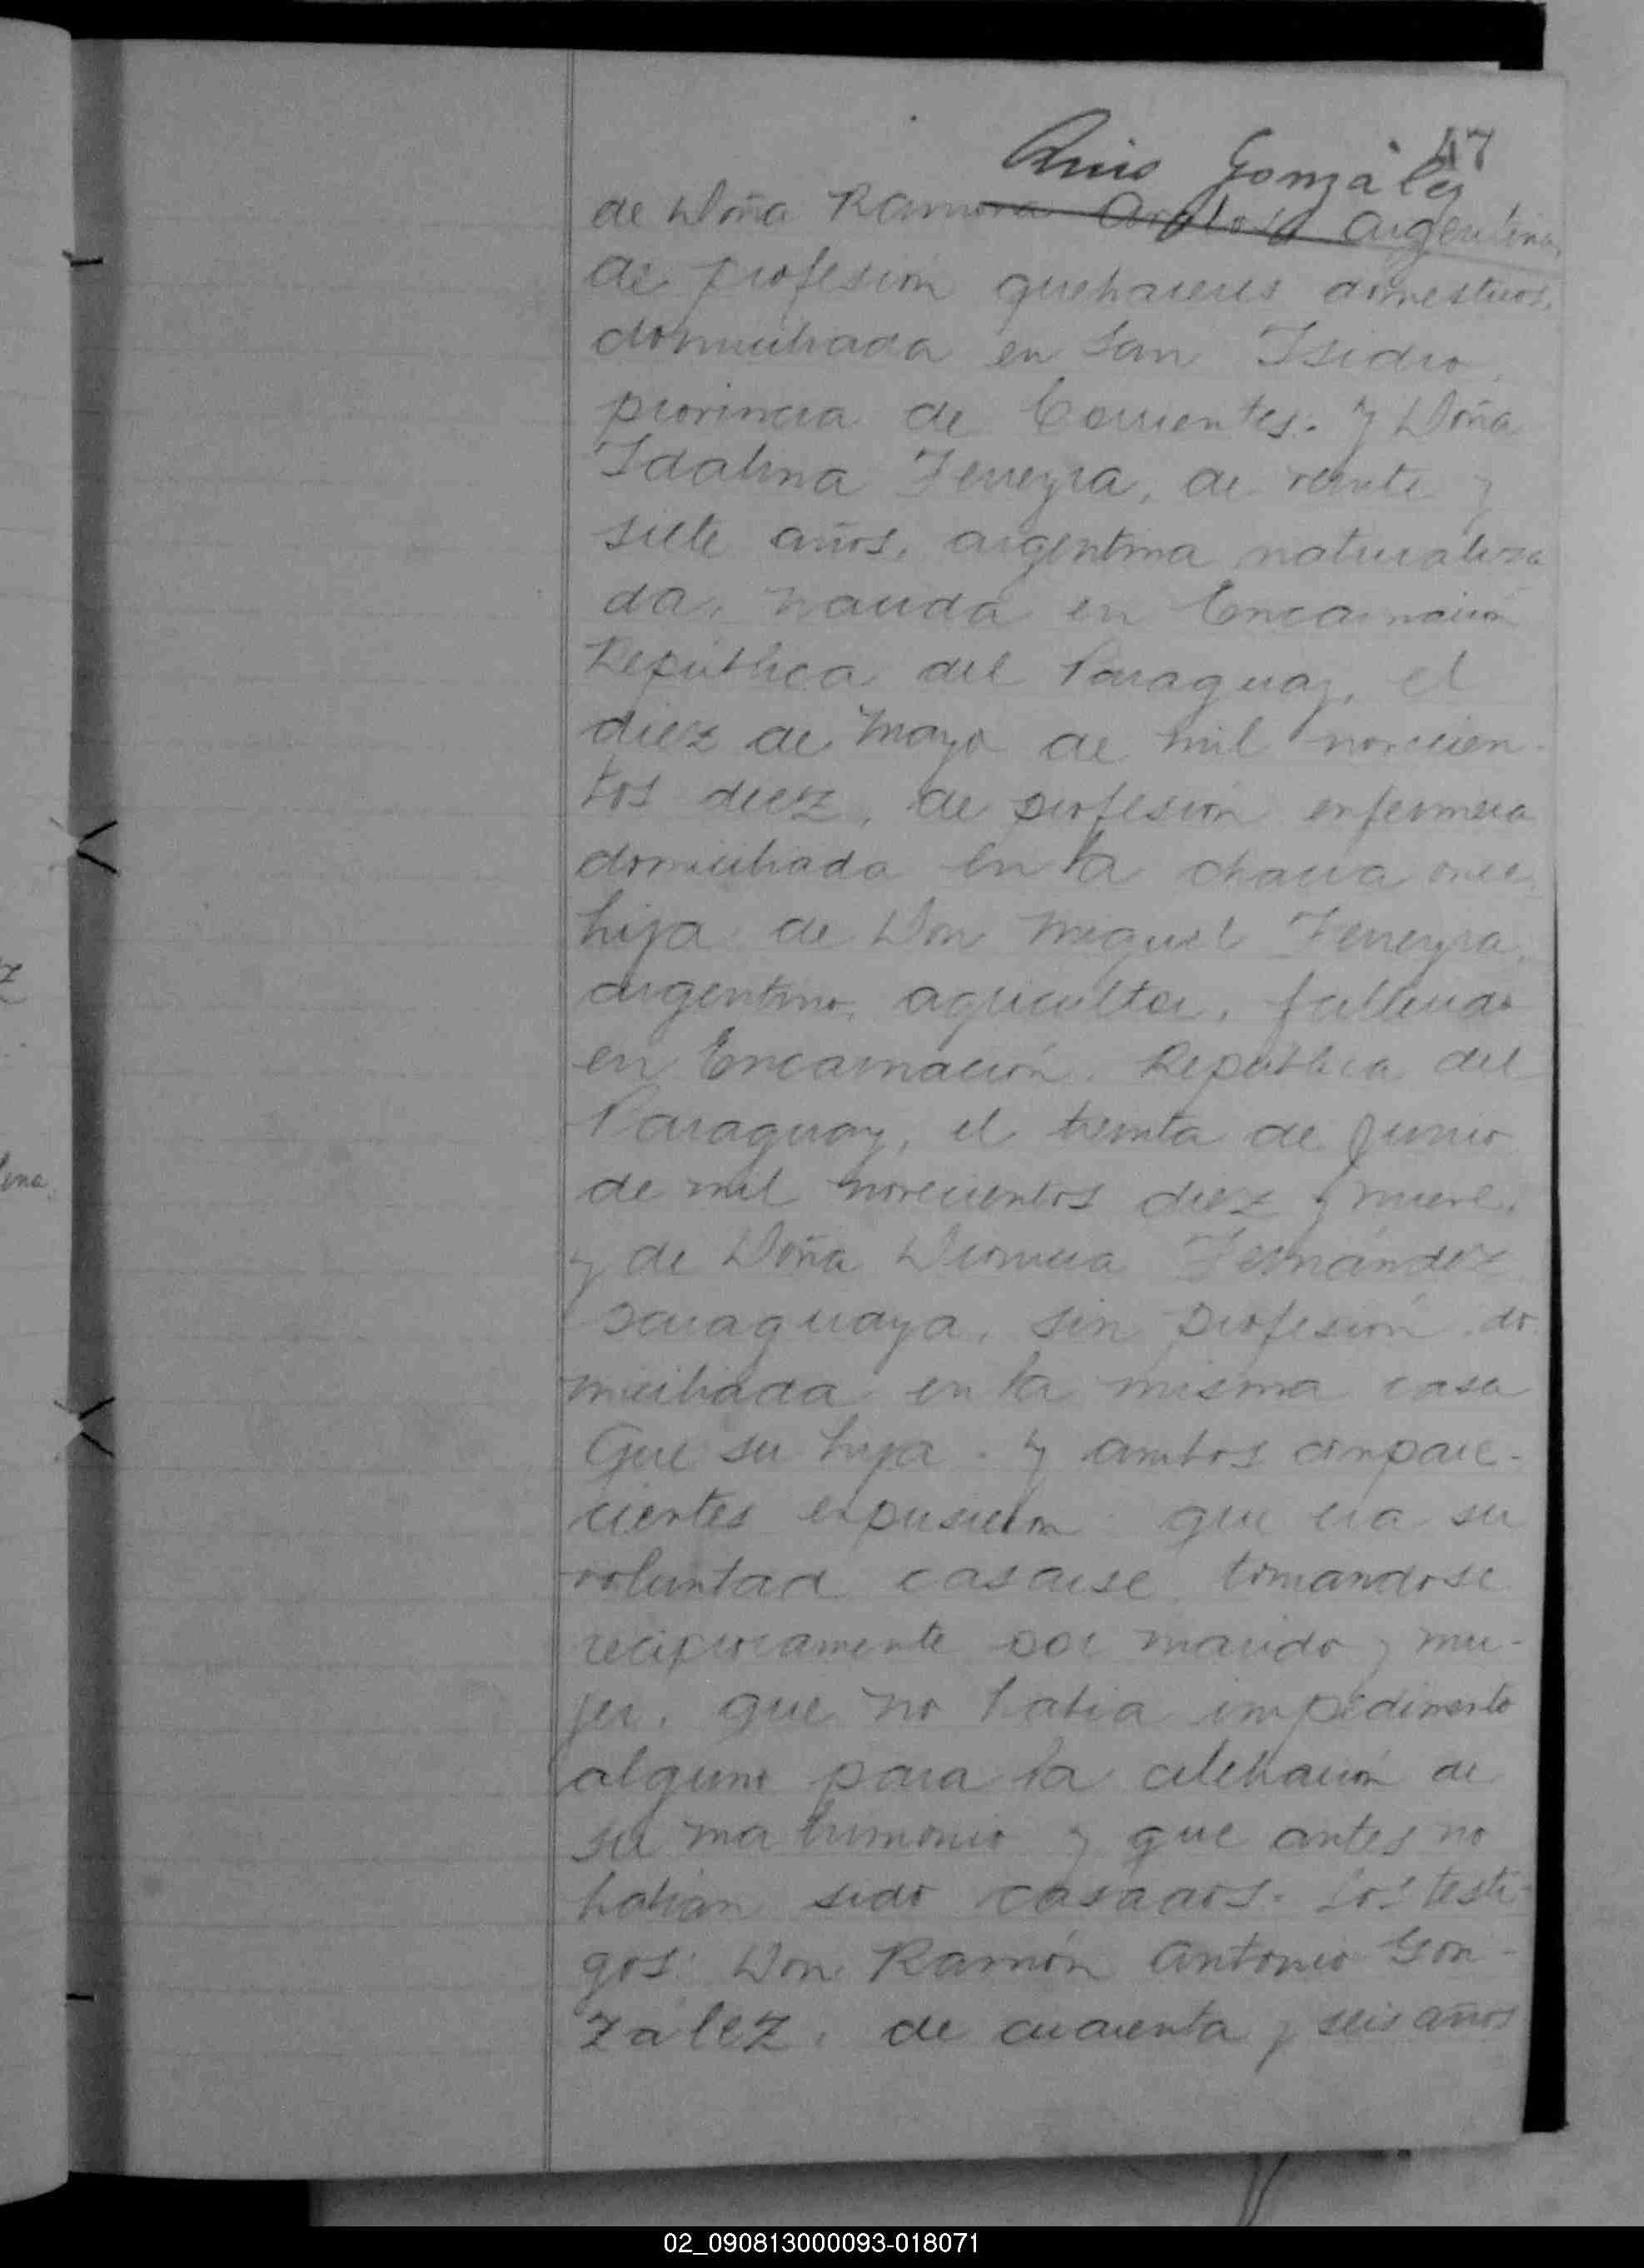 47
Luis González
de Doña Ramona argentina,
de profesión quehaceres domésticos,
domiciliada en San Isidro,
provincia de Corrientes. Y Doña
Idalina Ferreyra, de veinte y
siete años, argentina naturaliza
da, nacida en Encarnación
República del Paraguay, el
diez de Mayo de mil novecien-
tos diez, de profesión enfermera
domiciliada en la chacra once
hija de Don Miguel Ferreyra,
argentino, agricultor, fallecido
en Encarnación, República del
Paraguay, el treinta de Junio
de mil novecientos diez y nueve,
y de Doña Fernández
paraguaya, sin profesión, do
miciliada en la misma casa
que su hija. Y ambos compare-
cientes expusieron: que era su
voluntad casarse tomandose
reciprocamente por marido y mu-
jer, que no había impedimento
alguno para la celebración de
su matrimonio y que antes no
habían sido casados. Los testi-
gos: Don Ramón Antonio Gon-
zález, de cuarenta y seis años
ena,
z
02_090813000093-018071